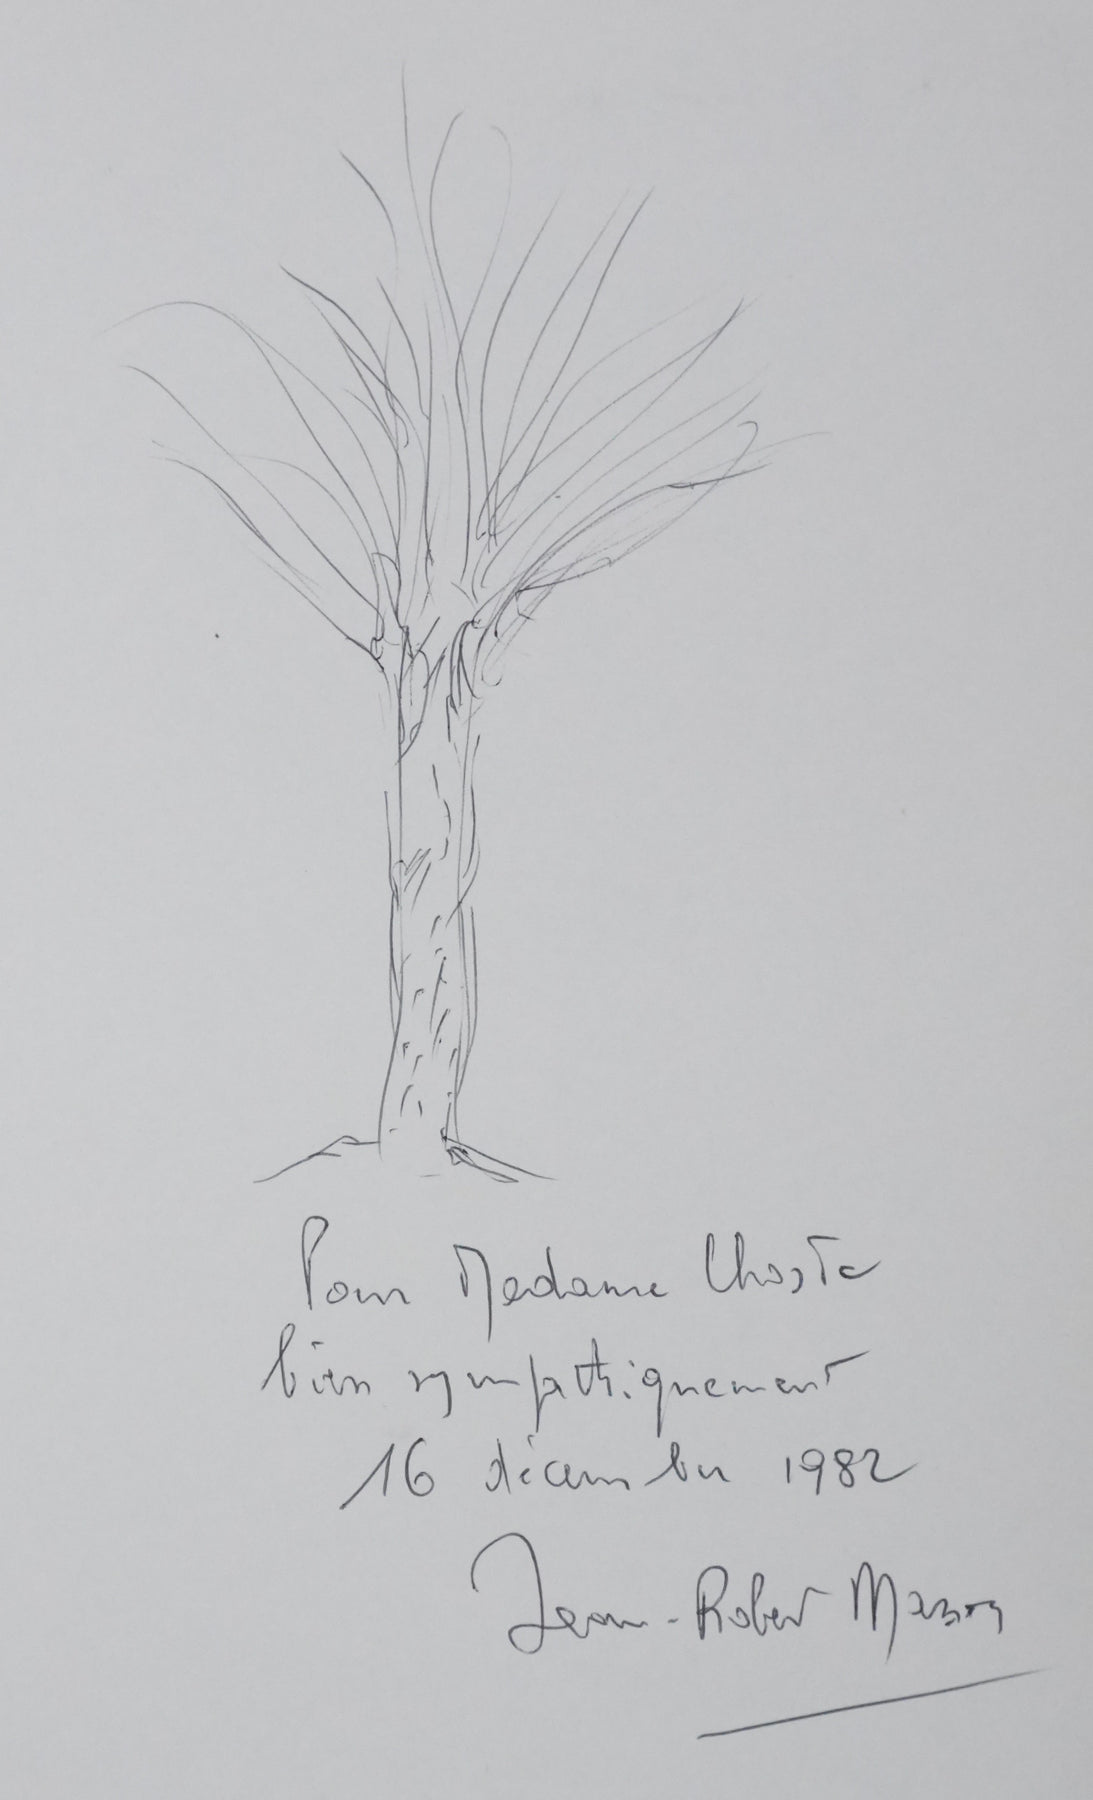 Pour Madame Lhoste
bien sympathiquement
16 décembre 1982
Jean-Robert Masson